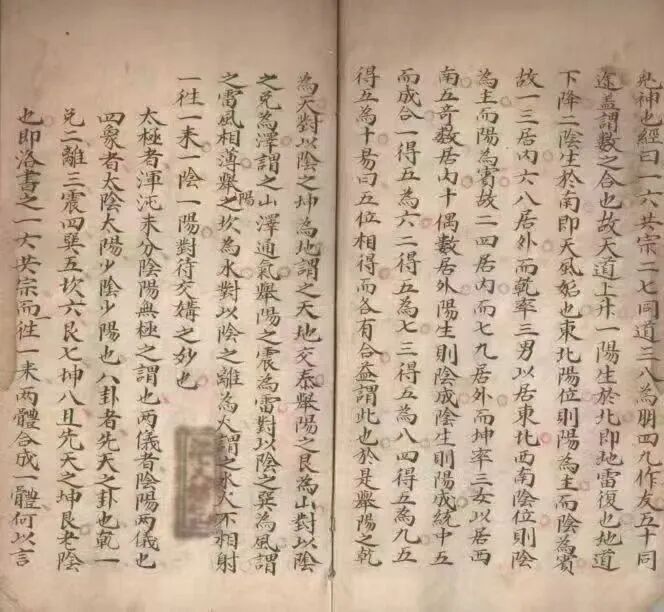 鬼神也經曰一六共宗二七同道三八為朋四九作友五十同
途蓋謂數之合也故天道上升一陽生於北即地雷復也地道
下降二陰生於南即天風姤也東北陽位則陽為主而陰為賓
故一三居內六八居外而乾率三男以居東北西南陰位則陰
為主而陽為賓故二四居內而七九居外而坤率三女以居西
南五奇數居內十偶數居外陽生則陰成陰生則陽成統中五
而成合一得五為六二得五為七三得五為八四得五為九五
得五為十易曰五位相得而各有合蓋謂此也於是舉陽之乾
為天對以陰之坤為地謂之天地交泰舉陽之艮為山對以陰
之兌為澤謂之山澤通氣舉陽之震為雷對以陰之巽為風謂
之雷風相薄舉陽之坎為水對以陰之離為火謂之水火不相射
一往一來一陰一陽對待交媾之妙也
太極者渾沌未分陰陽無極之謂也兩儀者陰陽兩儀也
四象者太陰太陽少陰少陽也八卦者先天之卦也乾一
兌二離三震四巽五坎六艮七坤八且先天之坤艮老陰
也即洛書之一六共宗而往一來兩體合成一體何以言